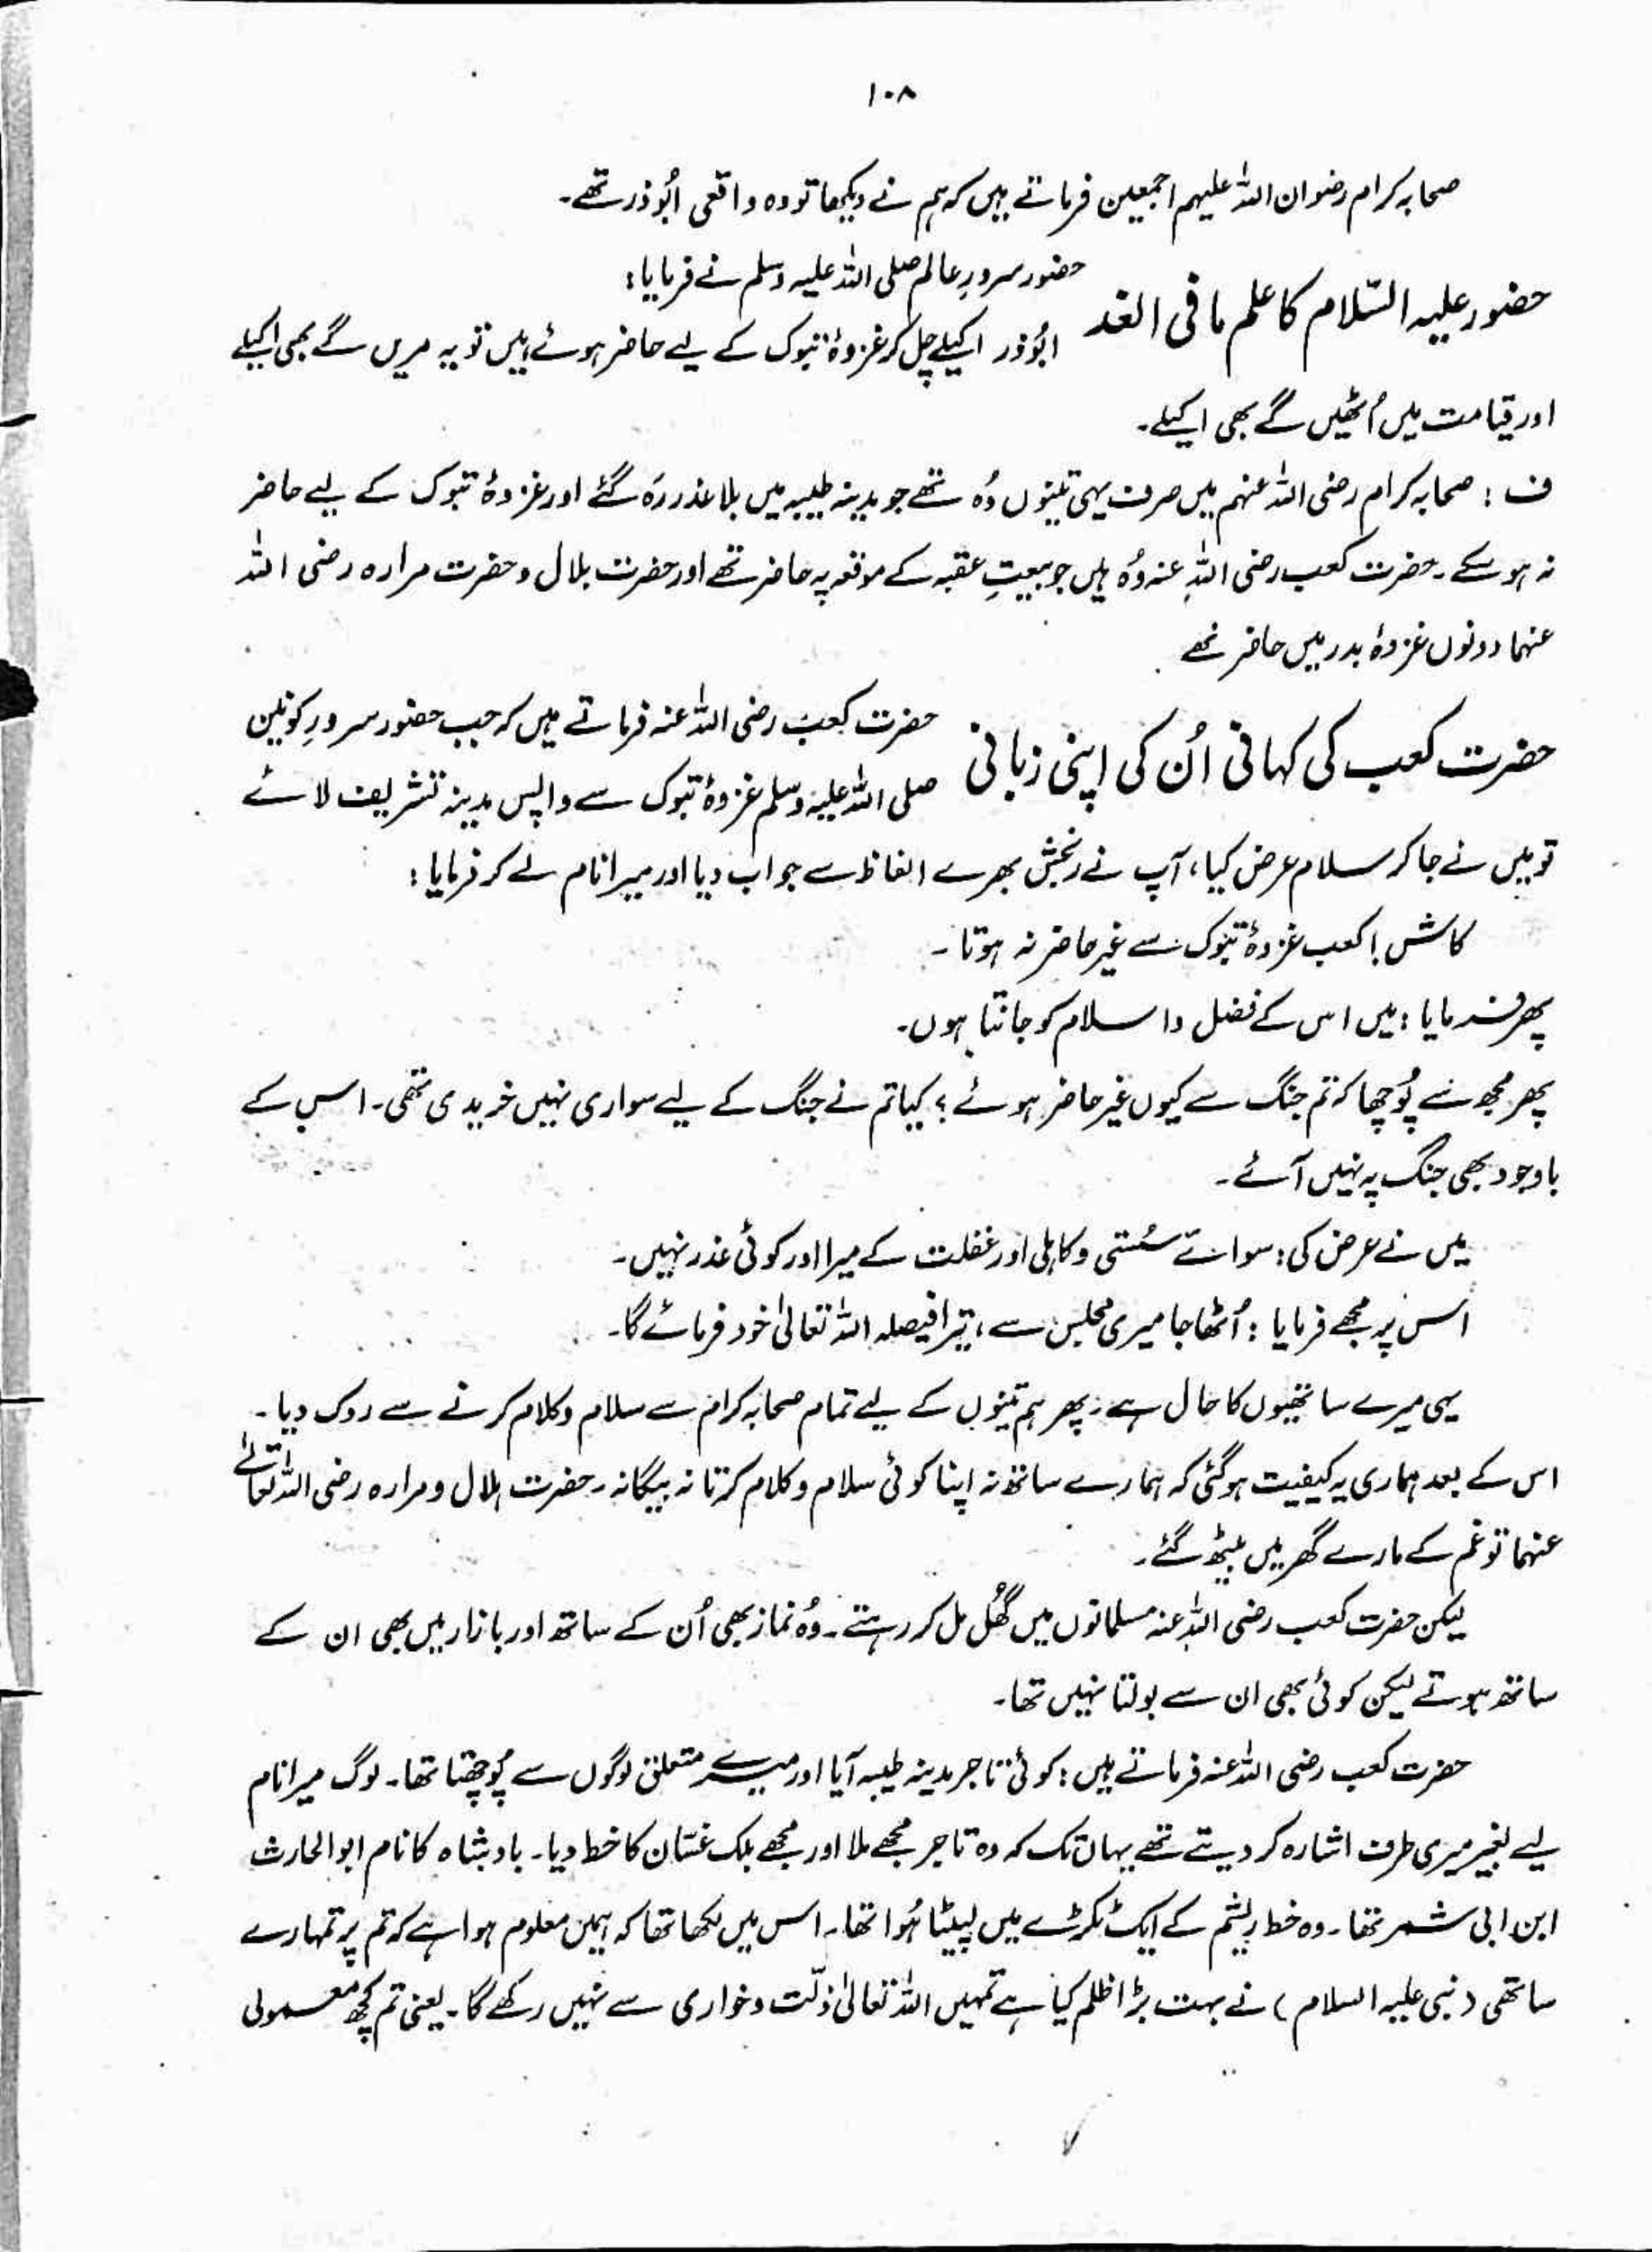 ۱۰۸
صحابہ کرام رضوان اللہ علیہم اجمعین فرماتے ہیں کہ ہم نے دیکھا تو وہ واقعی ابُوذر تھے۔
حضور علیہ السّلام کا علم ما فی الغد
حضور سرورِ عالم صلی اللہ علیہ وسلم نے فرمایا:
ابُوذر اکیلے چل کر غزوۂ تبوک کے لیے حاضر ہوئے ہیں تو یہ مریں گے بھی اکیلے
اور قیامت میں اُٹھیں گے بھی اکیلے۔
ف : صحابہ کرام رضی اللہ عنہم میں صرف یہی تینوں وُہ تھے جو مدینہ طیبہ میں بلا عذر رَہ گئے اور غزوۂ تبوک کے لیے حاضر
نہ ہو سکے۔ حضرت کعب رضی اللہ عنہ وُہ ہیں جو بیعتِ عقبہ کے موقعہ پہ حاضر تھے اور حضرت بلال و حضرت مرارہ رضی اللہ
عنہما دونوں غزوۂ بدر میں حاضر تھے
حضرت کعب کی کہانی اُن کی اپنی زبانی
حضرت کعب رضی اللہ عنہ فرماتے ہیں کہ جب حضور سرورِ کونین
صلی اللہ علیہ وسلم غزوۂ تبوک سے واپس مدینہ تشریف لائے
تو میں نے جا کر سلام عرض کیا، آپ نے رنجش بھرے الفاظ سے جواب دیا اور میرا نام لے کر فرمایا :
کاش! کعب غزوۂ تبوک سے غیر حاضر نہ ہوتا۔
پھر فرمایا : میں اس کے فضل و اسلام کو جانتا ہوں۔
پھر مجھ سے پُوچھا کہ تم جنگ سے کیوں غیر حاضر ہوئے ؟ کیا تم نے جنگ کے لیے سواری نہیں خریدی تھی۔ اس کے
باوجود بھی جنگ پہ نہیں آئے۔
میں نے عرض کی : سوائے سُستی و کاہلی اور غفلت کے میرا اور کوئی عذر نہیں۔
اس پر مجھے فرمایا : اُٹھا جا میری مجلس سے، تیرا فیصلہ اللہ تعالیٰ خود فرمائے گا۔
یہی میرے ساتھیوں کا حال ہے۔ پھر ہم تینوں کے لیے تمام صحابہ کرام سے سلام و کلام کرنے سے روک دیا۔
اس کے بعد ہماری یہ کیفیت ہو گئی کہ ہمارے ساتھ نہ اپنا کوئی سلام و کلام کرتا نہ بیگانہ۔ حضرت ہلال و مرارہ رضی اللہ تعالےٰ
عنہما تو غم کے مارے گھر میں بیٹھ گئے۔
لیکن حضرت کعب رضی اللہ عنہ مسلمانوں میں گھُل مل کر رہتے۔ وُہ نماز بھی اُن کے ساتھ اور بازار میں بھی ان کے
ساتھ ہوتے لیکن کوئی بھی ان سے بولتا نہیں تھا۔
حضرت کعب رضی اللہ عنہ فرماتے ہیں : کوئی تاجر مدینہ طیبہ آیا اور میرے متعلق لوگوں سے پُوچھتا تھا۔ لوگ میرا نام
لیے بغیر میری طرف اشارہ کر دیتے تھے یہاں تک کہ وہ تاجر مجھے ملا اور مجھے ملک غسّان کا خط دیا۔ بادشاہ کا نام ابو الحارث
ابن ابی شمر تھا۔ وہ خط ریشم کے ایک ٹکڑے میں لپیٹا ہُوا تھا۔ اس میں لکھا تھا کہ ہمیں معلوم ہوا ہے کہ تم پر تمہارے
ساتھی (نبی علیہ السلام) نے بہت بڑا ظلم کیا ہے تمہیں اللہ تعالیٰ ذلّت و خواری سے نہیں رکھے گا۔ یعنی تم کچھ معمولی